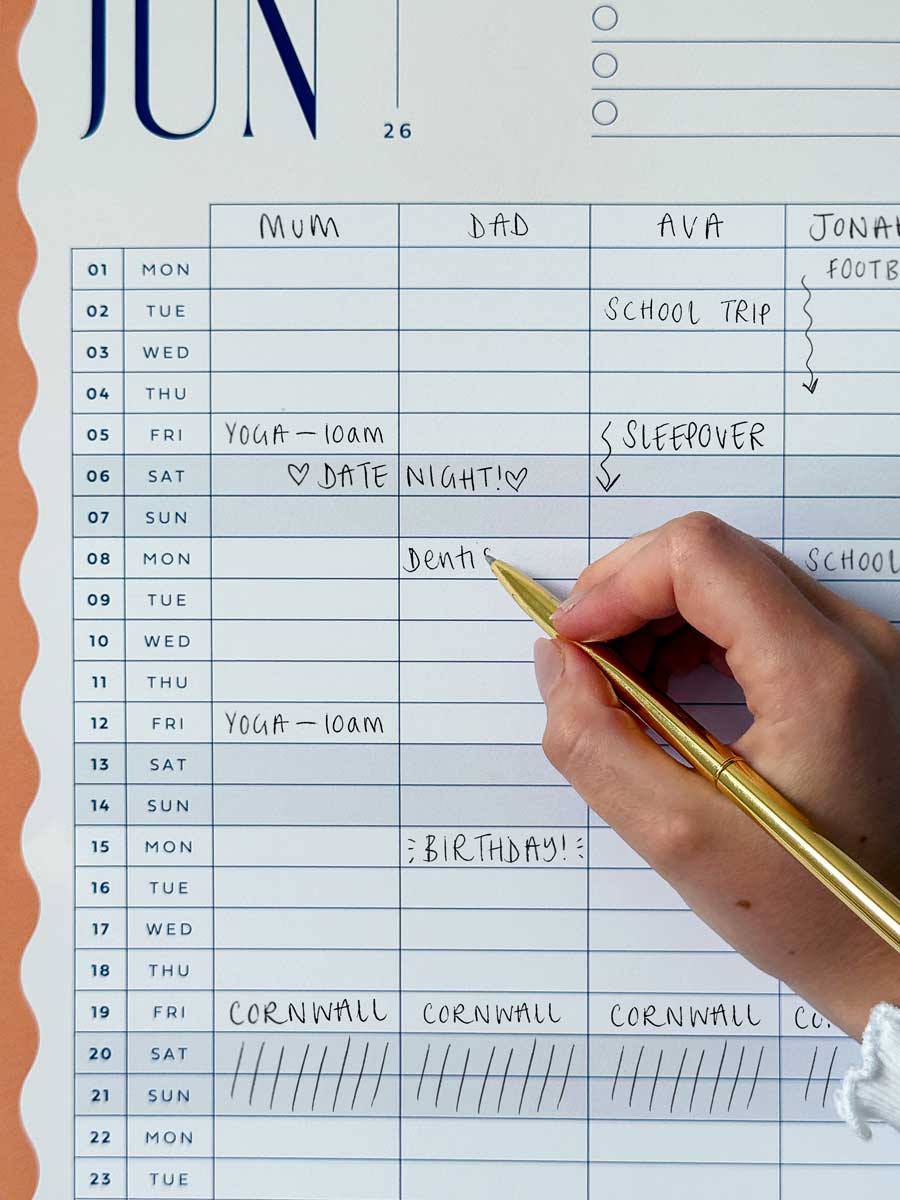 JUN
26
MUM DAD AVA
01 MON
02 TUE SCHOOL TRIP
03 WED
04 THU
05 FRI YOGA — 10am SLEEPOVER
06 SAT ♡ DATE NIGHT! ♡
07 SUN
08 MON SCHOOL
09 TUE
10 WED
11 THU
12 FRI YOGA — 10am
13 SAT
14 SUN
15 MON BIRTHDAY!
16 TUE
17 WED
18 THU
19 FRI CORNWALL CORNWALL CORNWALL
20 SAT
21 SUN
22 MON
23 TUE